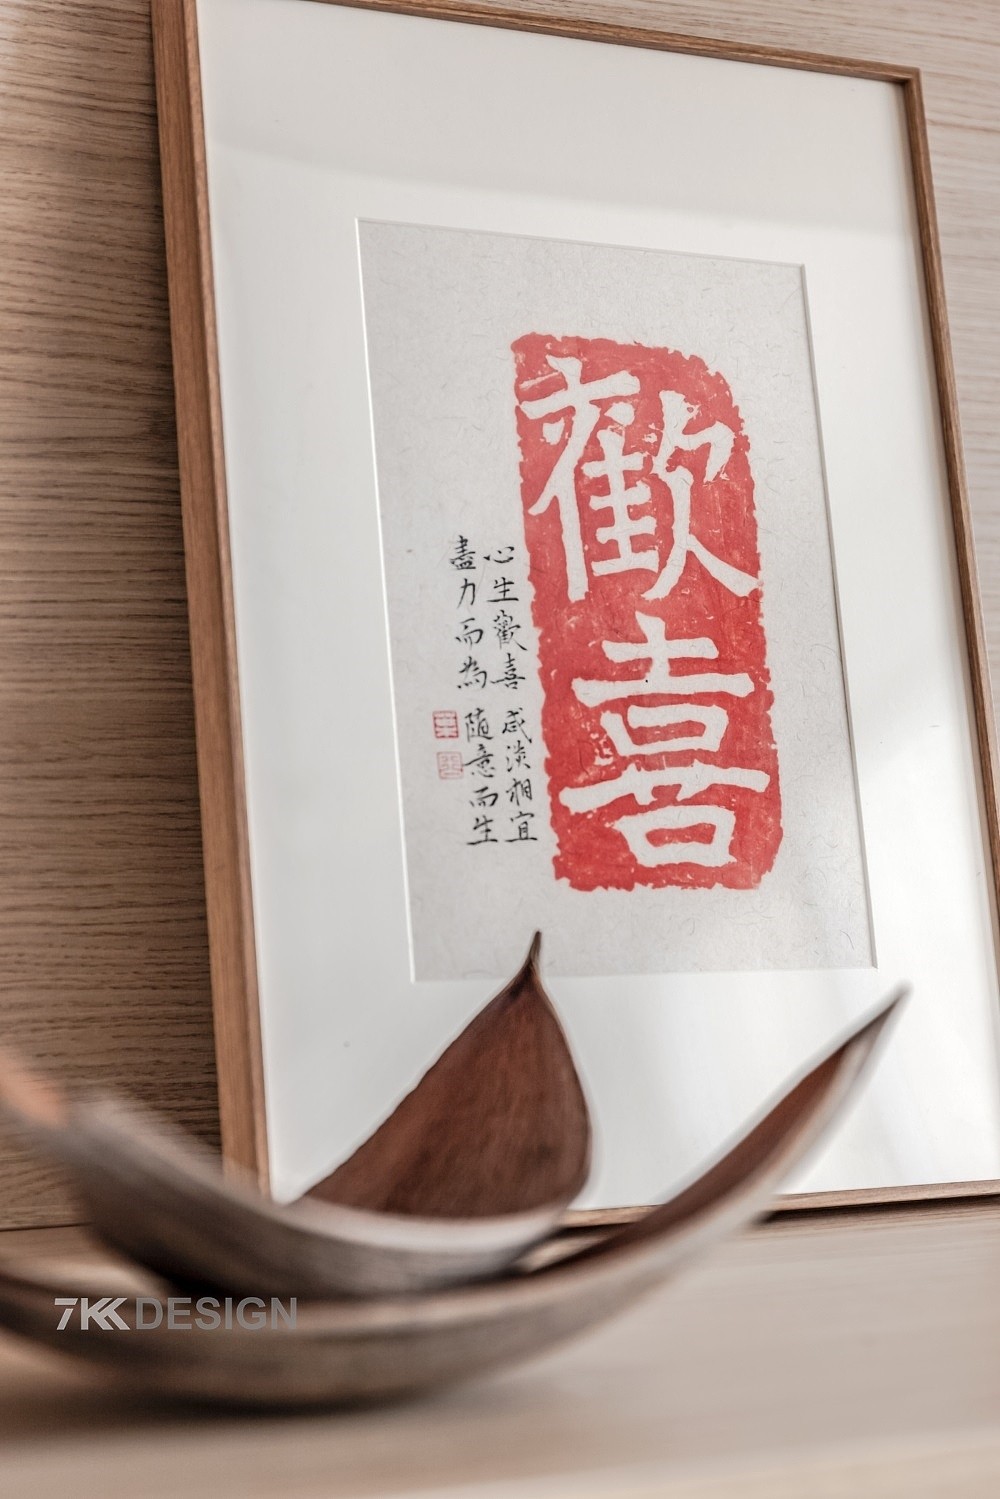 歡喜
心生歡喜 咸淡相宜
盡力而為 随意而生
7KK DESIGN